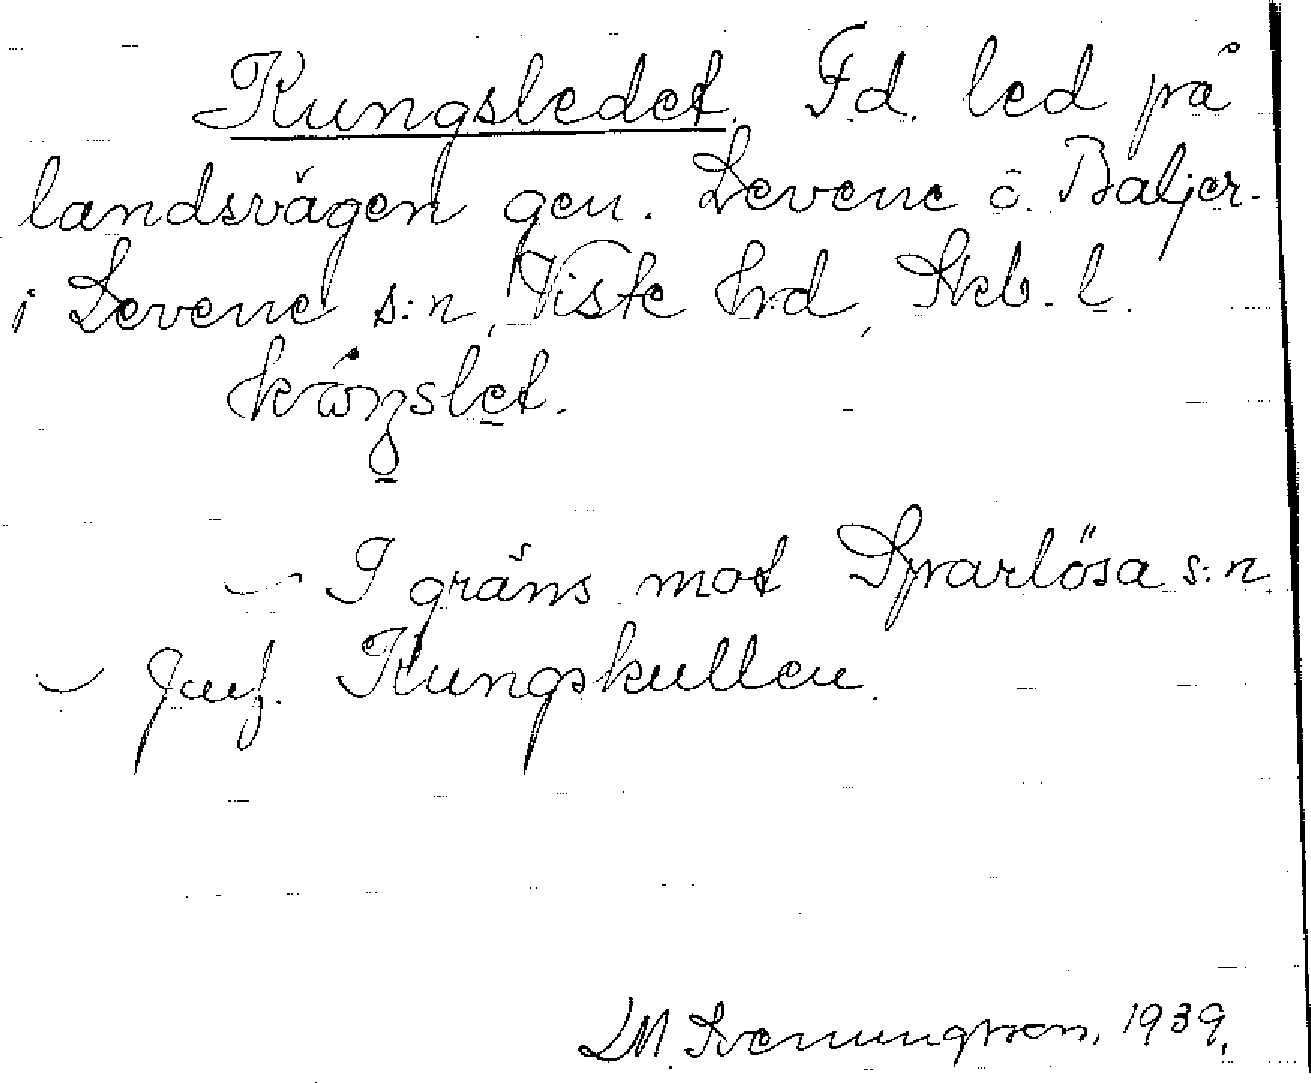 Kungsledet. F.d. led på
landsvägen gen. Levene ö. Baljer-
i Levene s:n, Viste hrd, Skb. l.
I gräns mot Sparlösa s:n
Jmf. Kungskullen.
LM Svenungsson, 1939.